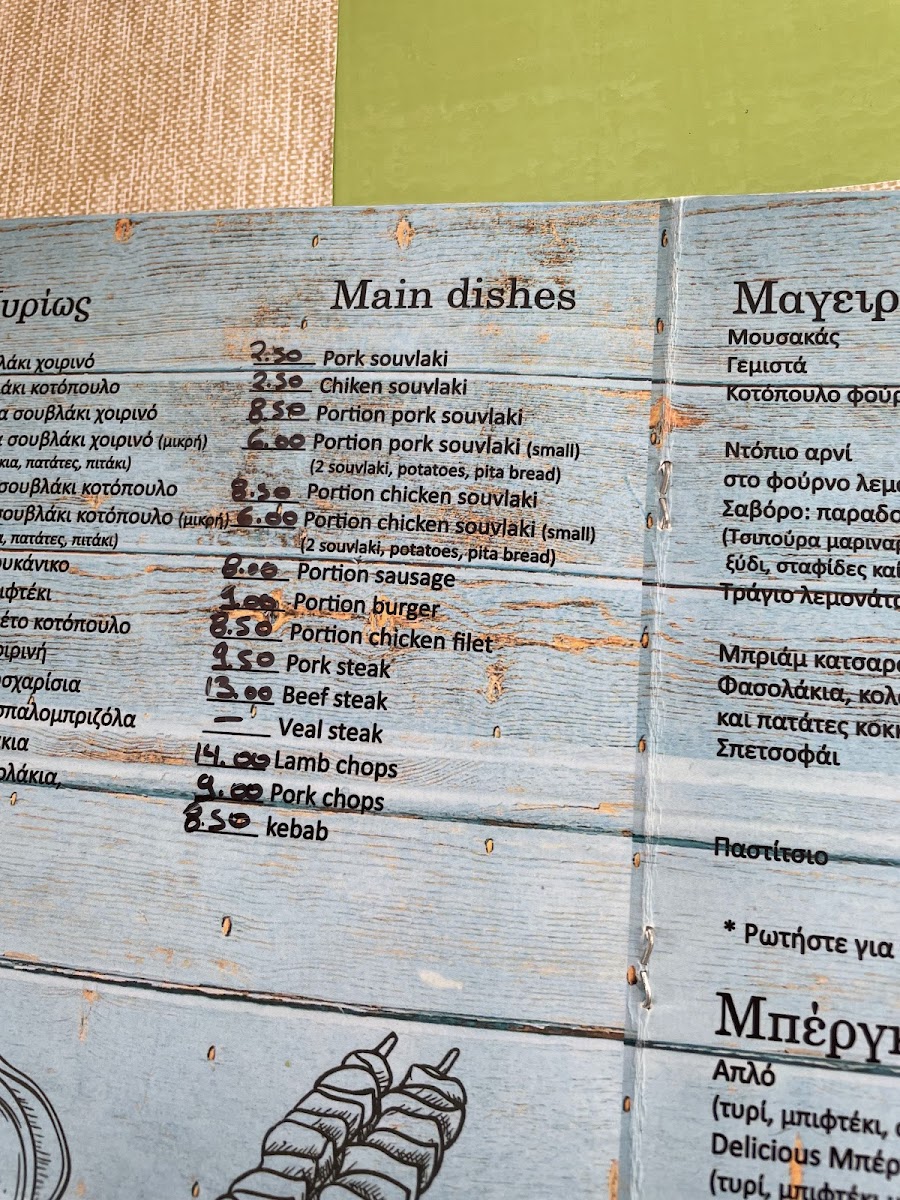 υρίως
λάκι χοιρινό
άκι κοτόπουλο
α σουβλάκι χοιρινό
α σουβλάκι χοιρινό (μικρή)
κια, πατάτες, πιτάκι)
σουβλάκι κοτόπουλο
σουβλάκι κοτόπουλο (μικρή)
α, πατάτες, πιτάκι)
ουκάνικο
ιφτέκι
έτο κοτόπουλο
οιρινή
οσχαρίσια
σπαλομπριζόλα
άκια
ολάκια,
Main dishes
2.50 Pork souvlaki
2.50 Chiken souvlaki
8.50 Portion pork souvlaki
6.00 Portion pork souvlaki (small)
(2 souvlaki, potatoes, pita bread)
8.50 Portion chicken souvlaki
6.00 Portion chicken souvlaki (small)
(2 souvlaki, potatoes, pita bread)
8.00 Portion sausage
9.00 Portion burger
8.50 Portion chicken filet
9.50 Pork steak
13.00 Beef steak
— Veal steak
14.00 Lamb chops
9.00 Pork chops
8.50 kebab
Μαγειρ
Μουσακάς
Γεμιστά
Κοτόπουλο φούρ
Ντόπιο αρνί
στο φούρνο λεμ
Σαβόρο: παραδο
(Τσιπούρα μαριναρ
ξύδι, σταφίδες καί
Τράγιο λεμονάτο
Μπριάμ κατσαρο
Φασολάκια, κολο
και πατάτες κοκκ
Σπετσοφάι
Παστίτσιο
* Ρωτήστε για
Μπέργκ
Απλό
(τυρί, μπιφτέκι,
Delicious Μπέρ
(τυρί, μπιφτέκι